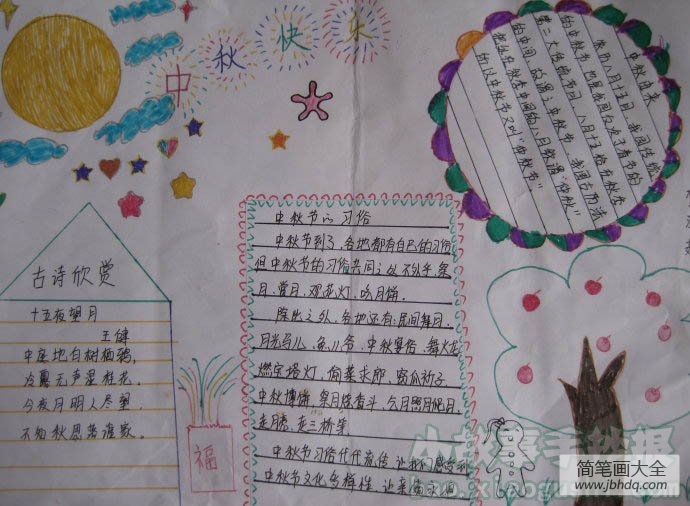 中秋快乐
中秋由来
农历八月十五日，我国传统
的中秋节，也是我国仅次于春节的
第二大传统节日。八月十五恰在秋季
的中间，故谓之中秋节。我国古历法
把处在秋季中间的八月称谓“仲秋”，
所以中秋节又叫“仲秋节”。
古诗欣赏
十五夜望月
王健
中庭地白树栖鸦，
冷露无声湿桂花。
今夜月明人尽望，
不知秋思落谁家。
福
中秋节的习俗
中秋节到了，各地都有自己的习俗
但中秋节的习俗共同之处不外乎祭
月、赏月、观花灯、吃月饼。
除此之外，各地还有：民间拜月、
月光马儿、兔儿爷、中秋宴俗、舞火龙
燃宝塔灯、偷菜求郎、窃瓜祈子
中秋博饼、拜月烧香斗、
走月亮、走三桥等
中秋节习俗代代流传，让我们感受到
中秋节文化多样性，让
简笔画大全
www.jbhdq.com